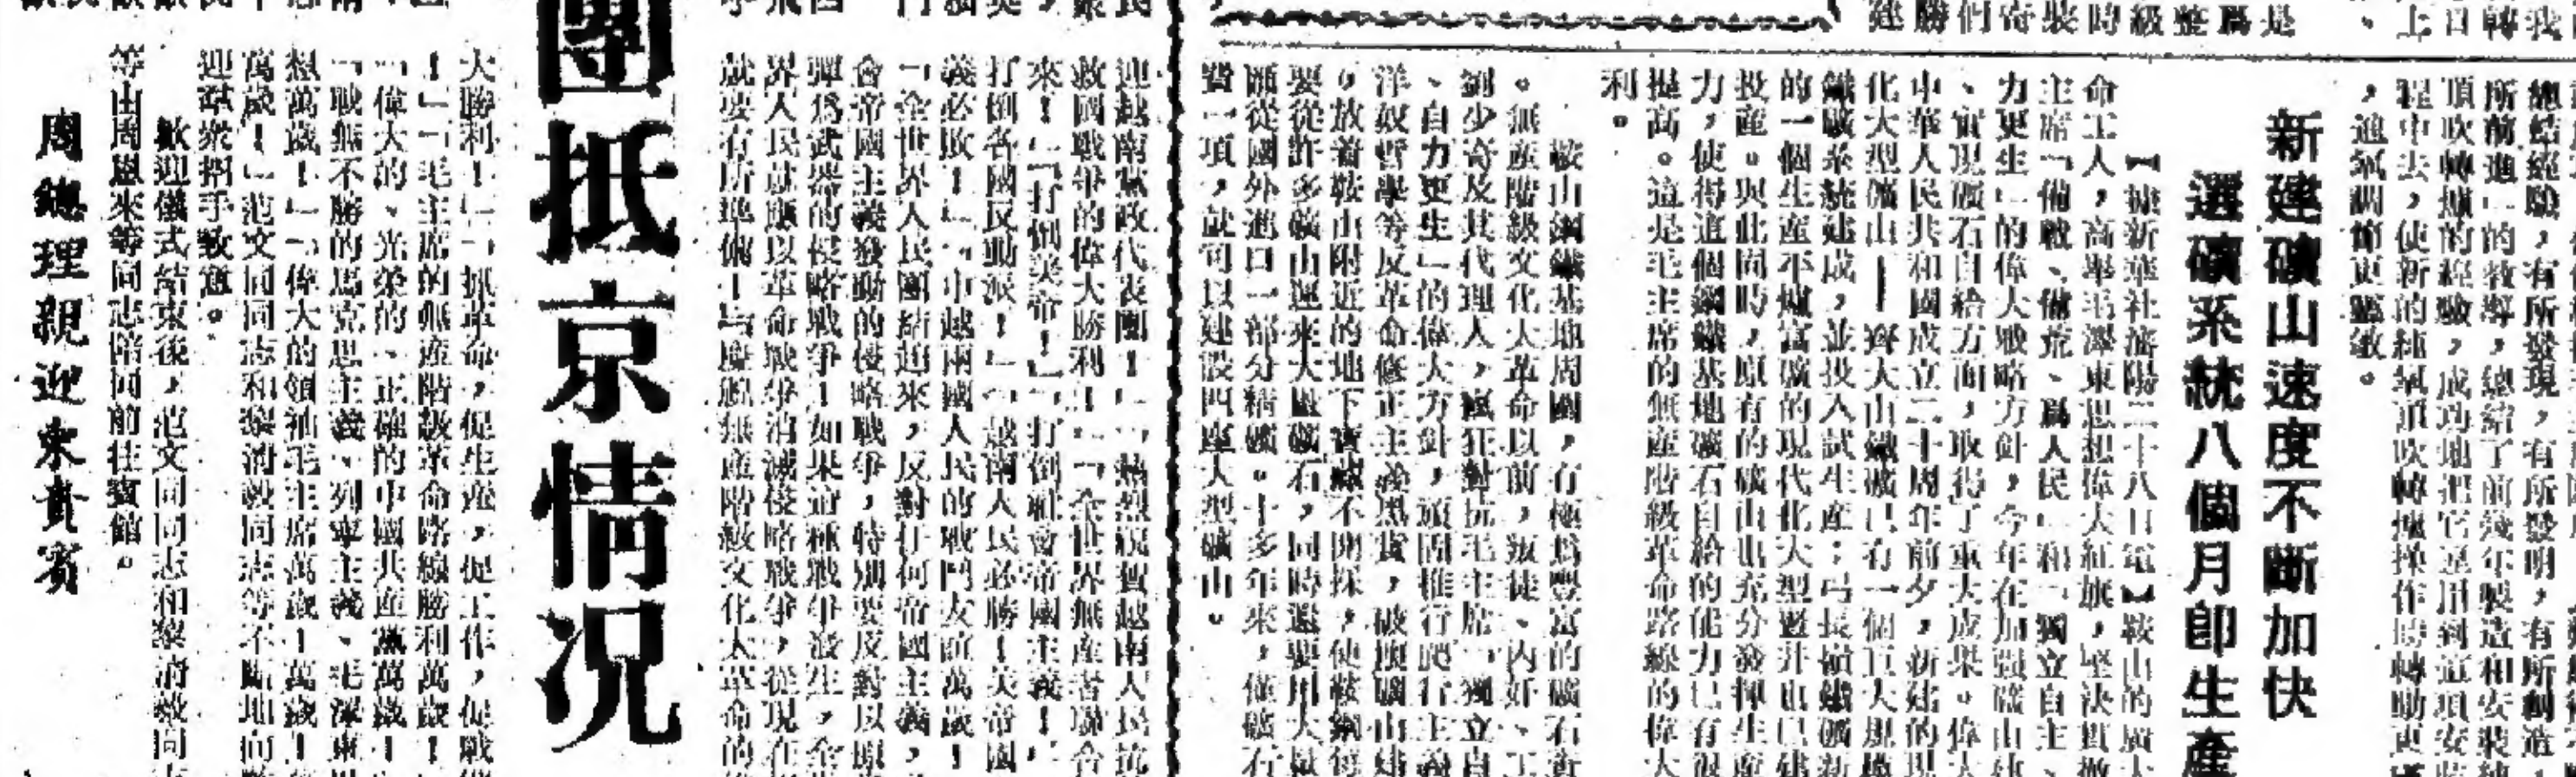 總結經驗，有所發現，有所發明，有所創造，
所前進」的敎導，總結了前幾年製造和安裝
頂吹轉爐的經驗，成功地把它運用到這項安
程中去，使新的純氧頂吹轉爐操作時轉動更
，進氣調節更靈敏。
新建礦山速度不斷加快
選礦系統八個月卽生產
【據新華社瀋陽二十八日電】鞍山的廣大
命工人，高舉毛澤東思想偉大紅旗，堅決貫徹
主席「備戰、備荒、爲人民」和「獨立自主、
力更生」的偉大戰略方針，今年在加强礦山建
、實現礦石自給方面，取得了重大成果。偉大
中華人民共和國成立二十周年前夕，新建的現
化大型礦山——齊大山鐵礦已有一個巨大規模
鐵礦系統建成，並投入試生產；弓長嶺鐵礦新
的一個生產平爐富礦的現代化大型豎井也已建
投產。與此同時，原有的礦山也充分發揮生產
力，使得這個鋼鐵基地礦石自給的能力已有很
提高。這是毛主席的無產階級革命路線的偉大
利。
鞍山鋼鐵基地周圍，有極爲豐富的礦石資
。無產階級文化大革命以前，叛徒、內奸、工
劉少奇及其代理人，瘋狂對抗毛主席「獨立自
、自力更生」的偉大方針，頑固推行爬行主義
洋奴哲學等反革命修正主義黑貨，破壞礦山建
，放着鞍山附近的地下寶藏不開採，使鞍鋼每
要從許多礦山運來大量礦石，同時還要用大
額從國外進口一部分精礦。十多年來，僅礦石
費一項，就可以建設四座大型礦山。
迎越南黨政代表團！」「熱烈祝賀越南人民抗
救國戰爭的偉大勝利！」「全世界無產者聯合
來！」「打倒美帝！」「打倒社會帝國主義！」
打倒各國反動派！」「越南人民必勝！美帝國
義必敗！」「中越兩國人民的戰鬥友誼萬歲！
「全世界人民團結起來，反對任何帝國主義、
會帝國主義發動的侵略戰爭，特別要反對以原
彈爲武器的侵略戰爭！如果這種戰爭發生，全
界人民就應以革命戰爭消滅侵略戰爭，從現在
就要有所準備！」「慶祝無產階級文化大革命的
團抵京情況
大勝利！」「抓革命，促生產，促工作，促戰備
！」「毛主席的無產階級革命路線勝利萬歲！
「偉大的、光榮的、正確的中國共產黨萬歲！
「戰無不勝的馬克思主義、列寧主義、毛澤東思
想萬歲！」「偉大的領袖毛主席萬歲！萬歲！
萬歲！」范文同同志和黎淸毅同志等不斷地向
迎羣衆招手致意。
歡迎儀式結束後，范文同同志和黎淸毅同
等由周恩來等同志陪同前往賓館。
周總理親迎來貴賓